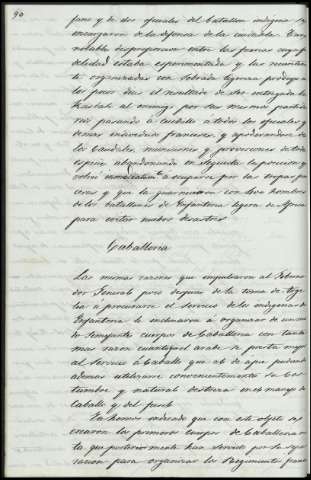 90
fano y de dos oficiales del batallon indigena se
encargaron de la defensa de la ciudadela. Tan
notable desproporcion entre las fuerzas cuya fi
delidad estaba esperimentada y las recientemen
te organizadas con sobrada ligereza produjo a
los pocos dias el resultado de ser entregada la
Kasbah al enemigo por sus mismos
pasando a cuchillo a todos los oficiales y
demas individuos franceses y apoderandose de
los caudales, municiones y provisiones de toda
especie abandonando en seguida la posicion que
volvió inmediatamte. á ocuparse por las tropas fran
cesas y que la guarnecieron con hombres
de los batallones de Infanteria ligera de Africa
para evitar nuevos desastres.
Caballeria
Las mismas razones que impulsaron al Goberna
dor General poco despues de la toma de Arge
l á procurarse el servicio de los indigenas de
Infanteria le inclinaron á organizar de un modo
semejante cuerpos de Caballeria con tanta
mas razon cuanto que el arabe se presta mejor
al servicio á caballo que al de a pie pudiendo
ademas utilizarse convenientemente la cos
tumbre y natural destreza en el manejo del
caballo y del fusil.
Ya hemos indicado que con este objeto se
crearon los primeros cuerpos de Caballeria
que posteriormente han servido por su sepa
racion para organizar los Regimientos fran